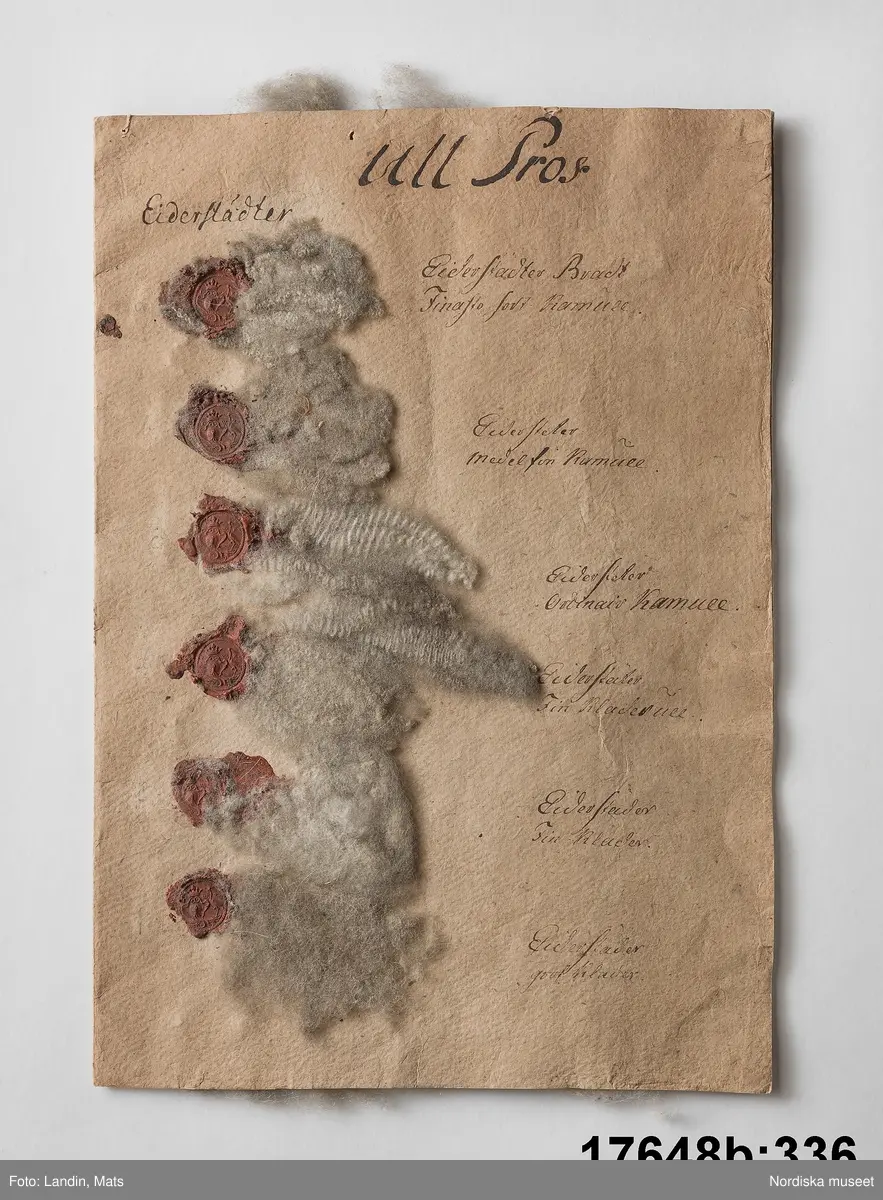 Ull Prof
Eiderstädter
Eiderstädter Bradt
Finaste sort Kamull.
Eidersteter
medelfin Kamull.
Eidersteter
Ordinair Kamull.
Eiderstäter
Fin Kladerull.
Eiderstäder
Fin Klader.
Eiderstäder
grof Klader
17648b:336
Foto: Landin, Mats
Nordiska museet